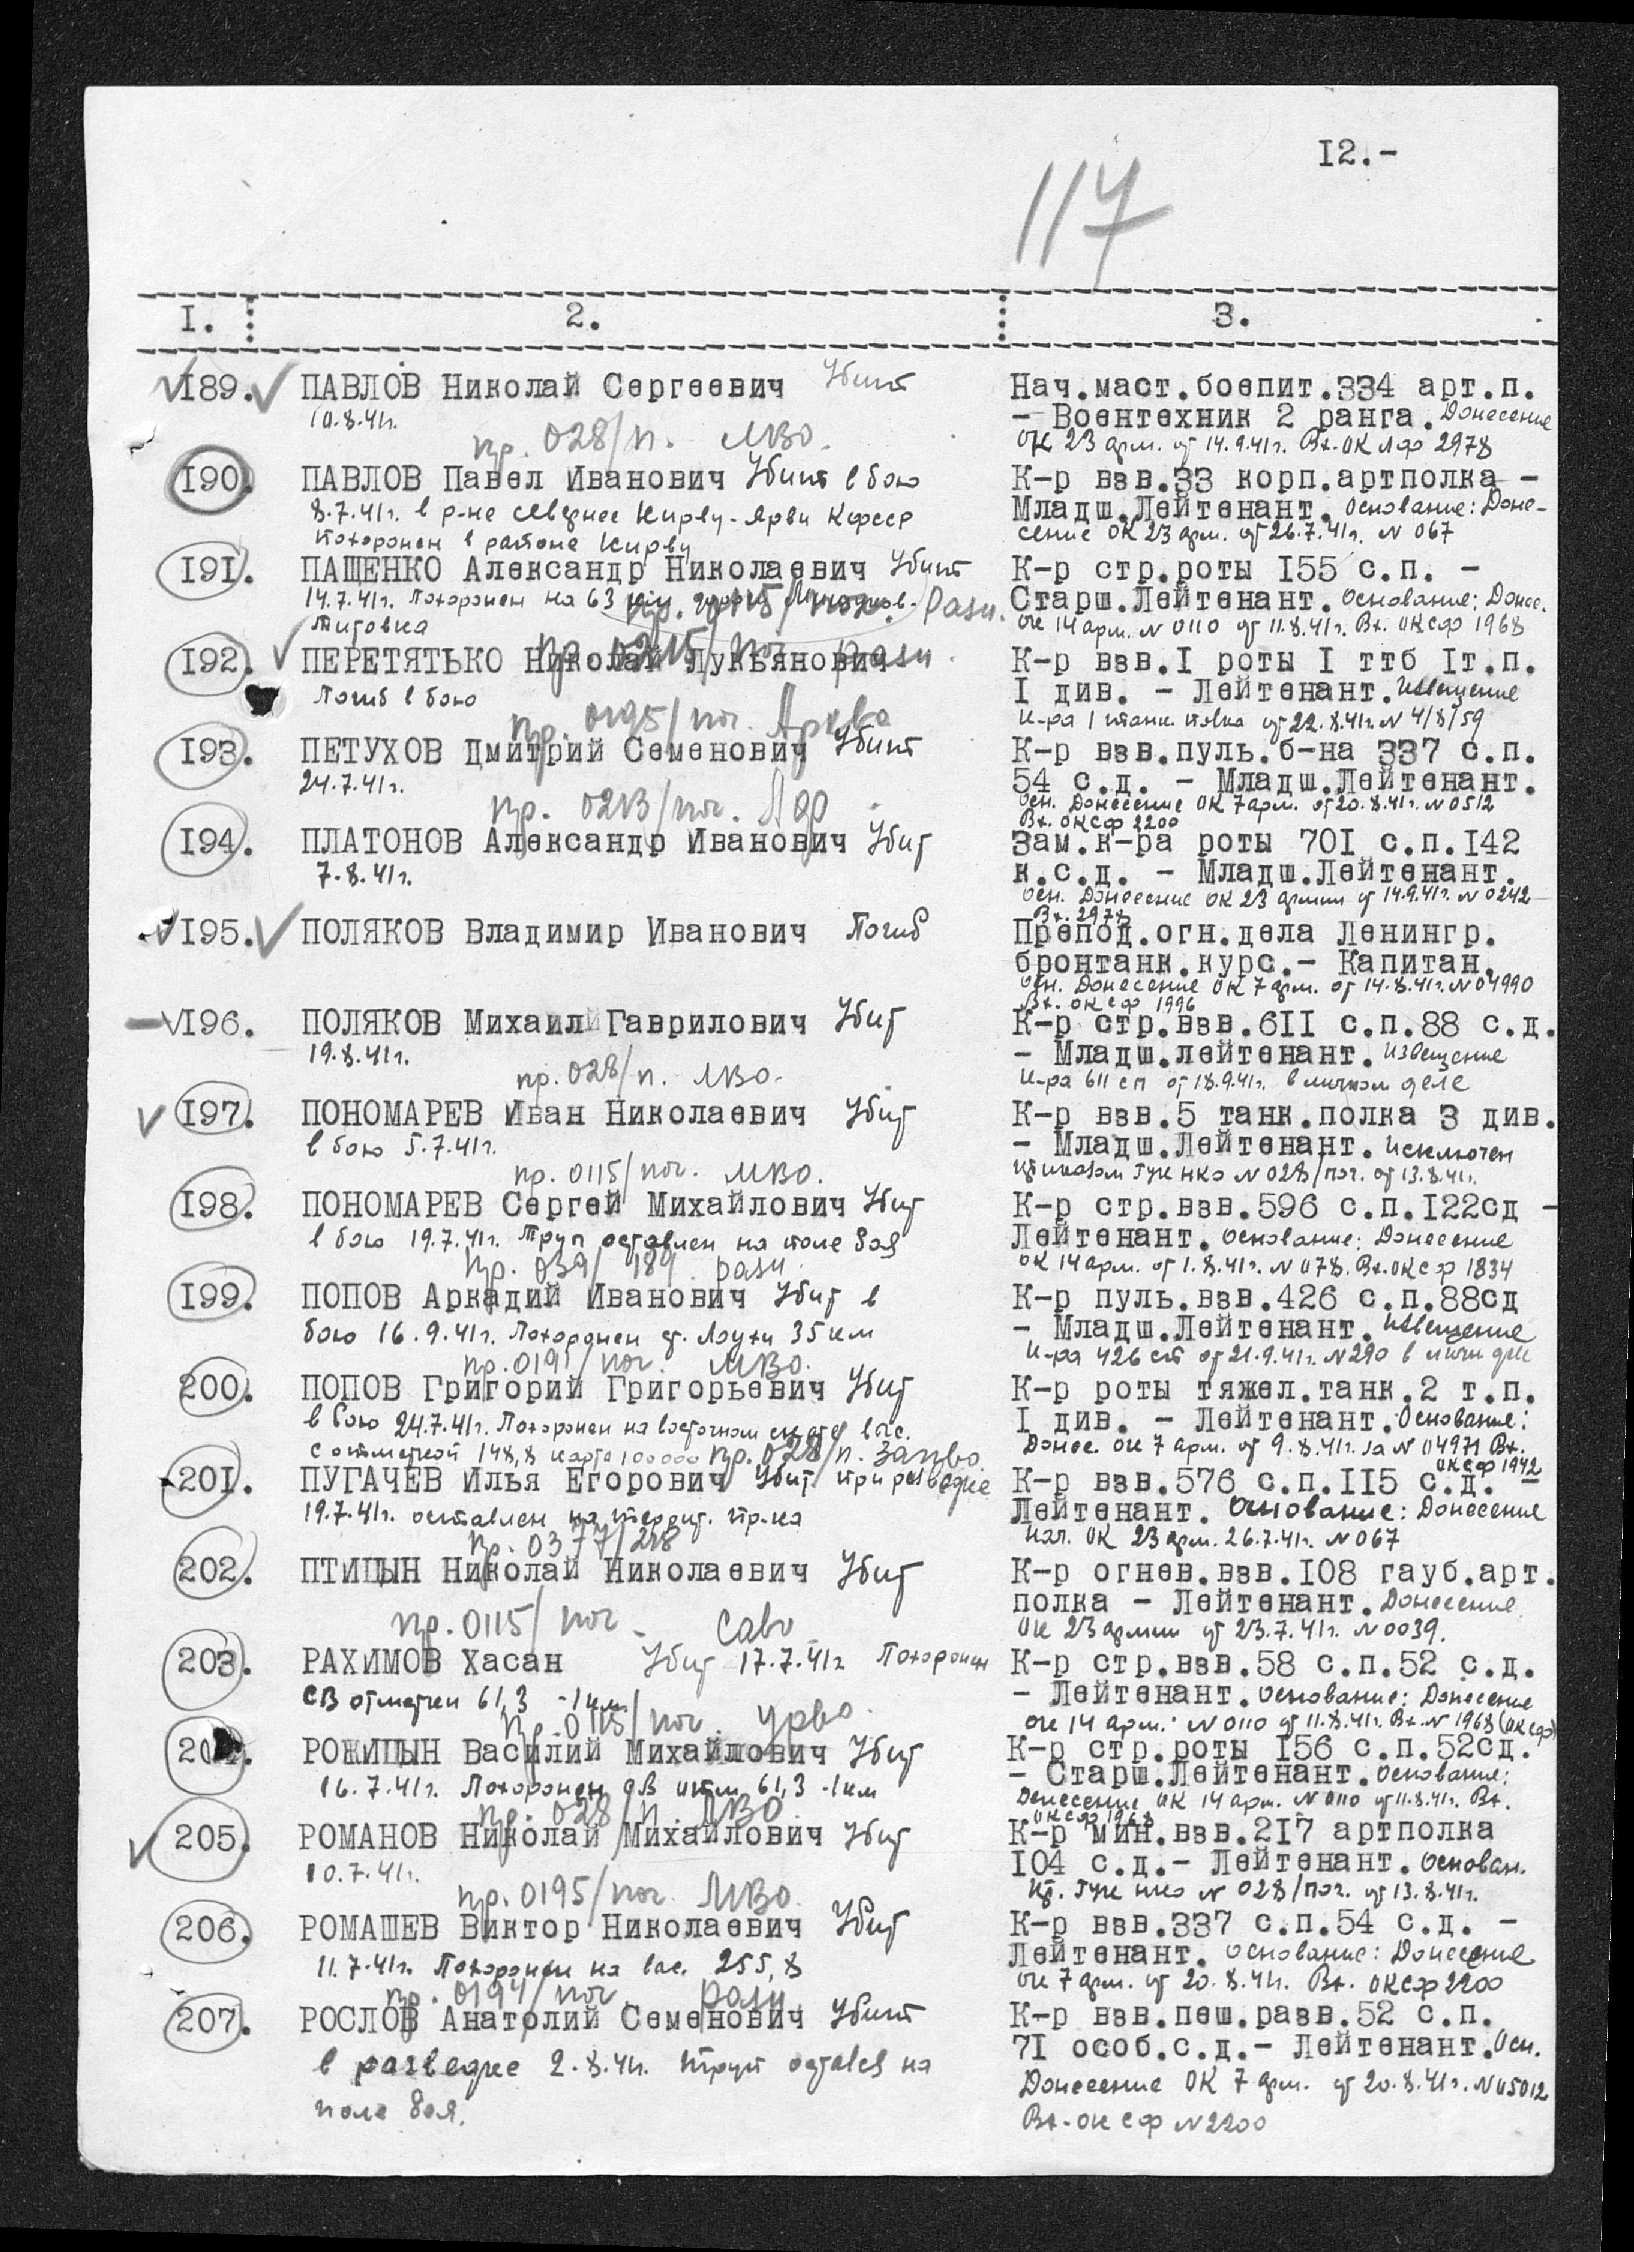 I2.-
117
I. 2. 3.
I89. ПАВЛОВ Николай Сергеевич Убит
10.8.41г.
пр. 028/п. ЛВО.
Нач.маст.боепит.334 арт.п.
- Воентехник 2 ранга. Донесение
ОК 23 арм. от 14.9.41г. Вх. ОК ЛФ 2978
I90. ПАВЛОВ Павел Иванович Убит в бою
8.7.41г. в р-не севернее Кирву-Ярви КФССР
Похоронен в районе Кирву
К-р взв.33 корп.артполка -
Младш.Лейтенант. Основание: Доне-
сение ОК 23 арм. от 26.7.41г. N 067
I91. ПАЩЕНКО Александр Николаевич Убит
14.7.41г. Похоронен на 63 км
Титовка
К-р стр.роты I55 с.п. -
Старш.Лейтенант. Основание: Донес.
ОК 14 арм. N 0110 от 11.8.41г. Вх. ОКСФ 1968
I92. ПЕРЕТЯТЬКО Николай Лукьянович
Погиб в бою
К-р взв.I роты I ттб Iт.п.
I див. - Лейтенант. Извещение
К-ра 1 танк. полка от 22.8.41г. N 4/8/59
пр. 0195/пог. АркВо
I93. ПЕТУХОВ Дмитрий Семенович Убит
24.7.41г.
К-р взв.пуль.б-на 337 с.п.
54 с.д. - Младш.Лейтенант.
Осн. Донесение ОК 7 арм. от 20.8.41г. N 0512
Вх. ОКСФ 2200
пр. 0213/пог.
I94. ПЛАТОНОВ Александр Иванович Убит
7.8.41г.
Зам.к-ра роты 70I с.п.I42
к.с.д. - Младш.Лейтенант.
Осн. Донесение ОК 23 армии от 14.9.41г. N 0242
Вх. 2974
I95. ПОЛЯКОВ Владимир Иванович Погиб
Препод.огн.дела Ленингр.
бронтанк.курс.- Капитан.
Осн. Донесение ОК 7 арм. от 14.8.41г. N 04990
Вх. ОКСФ 1996
I96. ПОЛЯКОВ Михаил Гаврилович Убит
19.8.41г.
К-р стр.взв.6II с.п.88 с.д.
- Младш.лейтенант. Извещение
К-ра 611 сп от 18.9.41г. в личном деле
пр. 028/п. ЛВО.
I97. ПОНОМАРЕВ Иван Николаевич Убит
в бою 5.7.41г.
К-р взв.5 танк.полка 3 див.
- Младш.Лейтенант. Исключен
приказом ГУК НКО N 028/пог. от 13.8.41г.
пр. 0115/пог. МВО.
I98. ПОНОМАРЕВ Сергей Михайлович Убит
в бою 19.7.41г. Труп оставлен на поле боя
К-р стр.взв.596 с.п.I22сд -
Лейтенант. Основание: Донесение
ОК 14 арм. от 1.8.41г. N 078. Вх. ОКСФ 1834
пр. 039/
I99. ПОПОВ Аркадий Иванович Убит в
бою 16.9.41г. Похоронен ст. Лоухи 35 км
К-р пуль.взв.426 с.п.88сд
- Младш.Лейтенант. Извещение
К-ра 426 сп от 21.9.41г. N 290 в личн деле
пр. 0191/пог. МВО.
200. ПОПОВ Григорий Григорьевич Убит
в бою 24.7.41г. Похоронен на восточном скате выс.
с отметкой 148,8 карта 100000
К-р роты тяжел.танк.2 т.п.
I див. - Лейтенант. Основание:
Донес. ОК 7 арм. от 9.8.41г. за N 04971 Вх.
ОКСФ 1942
пр. 028/п. ЗапВо.
20I. ПУГАЧЕВ Илья Егорович Убит при разведке
19.7.41г. оставлен на террит. пр-ка
К-р взв.576 с.п.II5 с.д. -
Лейтенант. Основание: Донесение
нач. ОК 23 арм. 26.7.41г. N 067
пр. 0377/
202. ПТИЦЫН Николай Николаевич Убит
К-р огнев.взв.I08 гауб.арт.
полка - Лейтенант. Донесение
ОК 23 армии от 23.7.41г. N 0039.
пр. 0115/пог. САВО
203. РАХИМОВ Хасан Убит 17.7.41г. Похоронен
СВ отметки 61,3 -1 км
К-р стр.взв.58 с.п.52 с.д.
- Лейтенант. Основание: Донесение
ОК 14 арм. N 0110 от 11.8.41г. Вх. N 1968 (ОКСФ)
пр. 0115/пог. УрВо.
204. РОЖИЦЫН Василий Михайлович Убит
16.7.41г. Похоронен 61,3 -1 км
К-р стр.роты I56 с.п.52сд.
- Старш.Лейтенант. Основание:
Донесение ОК 14 арм. N 0110 от 11.8.41г. Вх.
ОКСФ 1968
пр. 028/п. ЛВО
205. РОМАНОВ Николай Михайлович Убит
10.7.41г.
К-р мин.взв.2I7 артполка
I04 с.д.- Лейтенант. Основан.
Пр. ГУК НКО N 028/пог. от 13.8.41г.
пр. 0195/пог. МВО.
206. РОМАШЕВ Виктор Николаевич Убит
11.7.41г. Похоронен на выс. 255,8
К-р взв.337 с.п.54 с.д. -
Лейтенант. Основание: Донесение
ОК 7 арм. от 20.8.41г. Вх. ОКСФ 2200
пр. 0194/пог
207. РОСЛОВ Анатолий Семенович Убит
в разведке 2.8.41г. Труп остался на
поле боя.
К-р взв.пеш.разв.52 с.п.
7I особ.с.д.- Лейтенант. Осн.
Донесение ОК 7 арм. от 20.8.41г. N 05012
Вх. ОКСФ N 2200